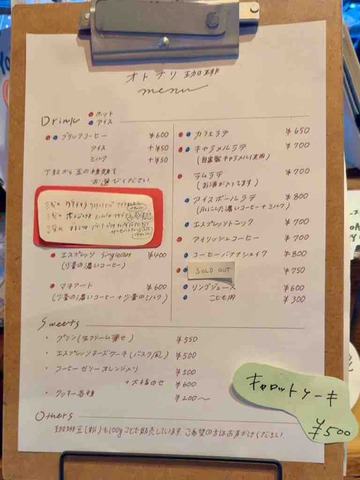 オトナリ珈琲
menu
Drink ホット
アイス
ブラックコーヒー ¥600
アイス +¥50
ミルク +¥50
下記から豆の種類を
お選びください
エスプレッソ single ¥400
(少量の濃いコーヒー)
マキアート ¥600
(少量の濃いコーヒー+少量のミルク)
カフェラテ ¥650
キャラメルラテ ¥700
(自家製キャラメル使用)
ラムラテ ¥700
(お酒が入ってます)
アイスボールラテ ¥800
(丸くこおった濃いコーヒー+ミルク)
エスプレッソトニック ¥700
アイリッシュコーヒー ¥700
コーヒーバナナシェイク ¥800
SOLD OUT ¥750
リンゴジュース ¥600
こども用 ¥300
Sweets
・プリン(生クリーム乗せ) ¥550
・エスプレッソチーズケーキ(バスク風) ¥500
・コーヒーゼリー オレンジ入り ¥500
¥600
・クッキー各種 ¥200〜
キャロットケーキ
¥500
Others
珈琲豆(粉)も100gごと販売しています。ご希望の方はお声がけください。